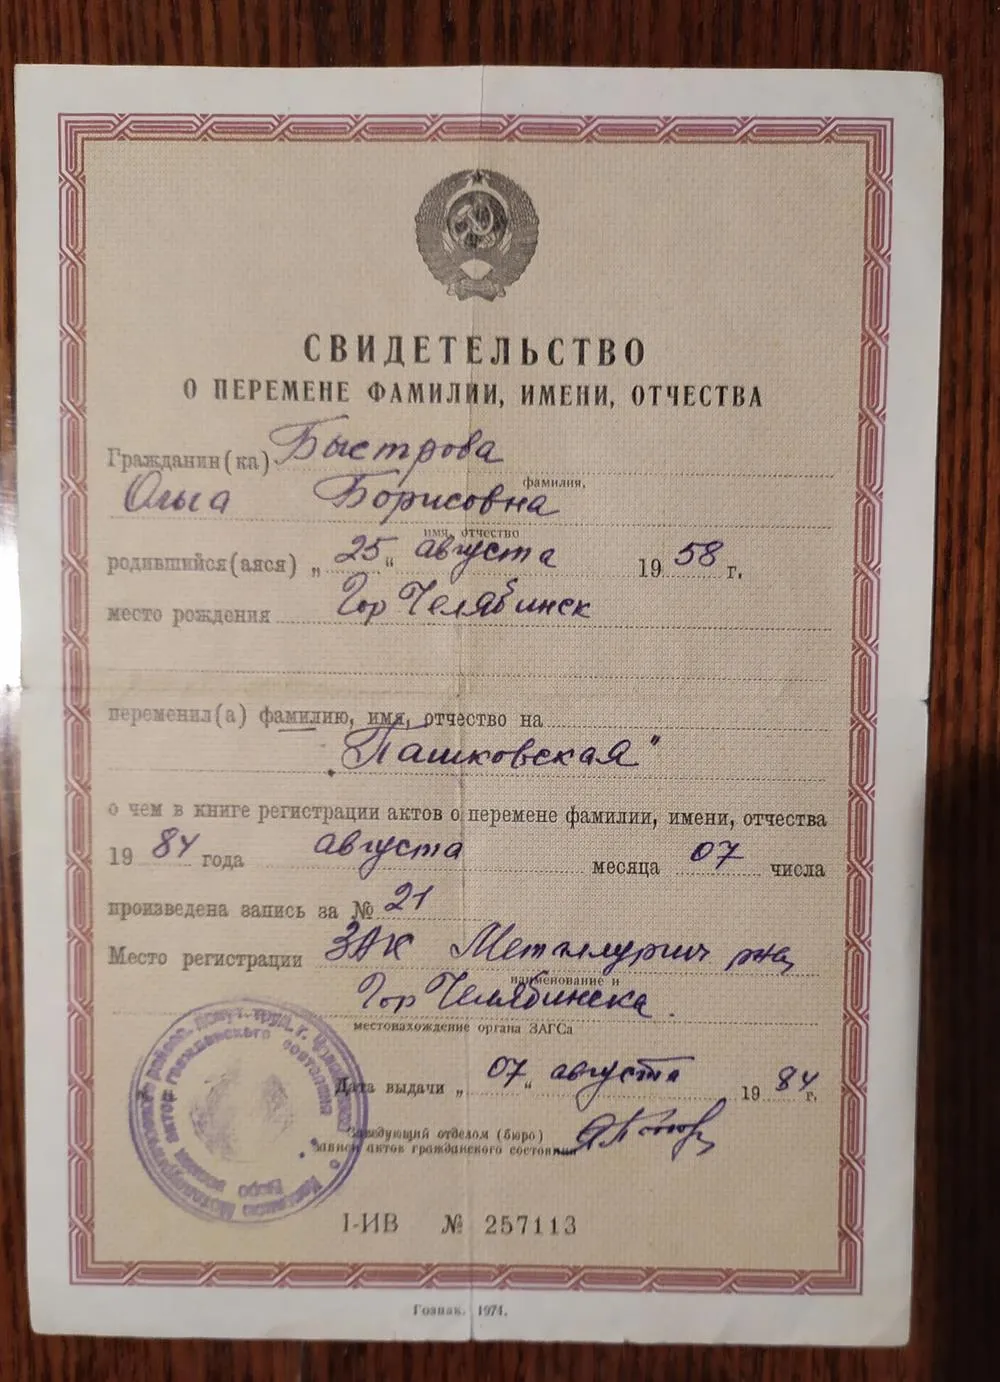 СВИДЕТЕЛЬСТВО
О ПЕРЕМЕНЕ ФАМИЛИИ, ИМЕНИ, ОТЧЕСТВА
Гражданин(ка) Быстрова
фамилия,
Ольга Борисовна
имя, отчество
родившийся(аяся) „ 25 “ августа 19 58 г.
место рождения Гор Челябинск
переменил(а) фамилию, имя, отчество на
„Пашковская"
о чем в книге регистрации актов о перемене фамилии, имени, отчества
19 84 года августа месяца 07 числа
произведена запись за № 21
Место регистрации ЗАК Металлургич
наименование и
Гор Челябинска
местонахождение органа ЗАГСа
Дата выдачи „ 07 “ августа 19 84 г.
Заведующий отделом (бюро)
записи актов гражданского состояния
I-ИВ № 257113
Гознак. 1974.